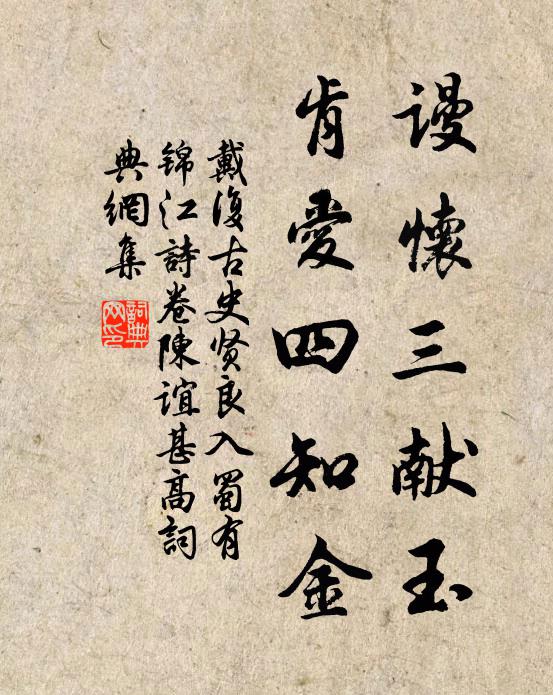 谩懷三献玉
肯愛四知金
戴復古史贤良入蜀有
锦江詩卷陳誼甚高詞
典網集
詞典网印